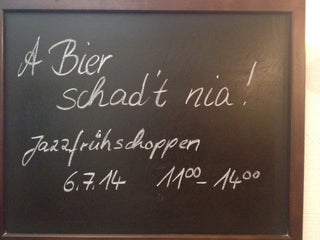 A Bier
schad't nia!
Jazzfrühschoppen
6.7.14 11⁰⁰-14⁰⁰